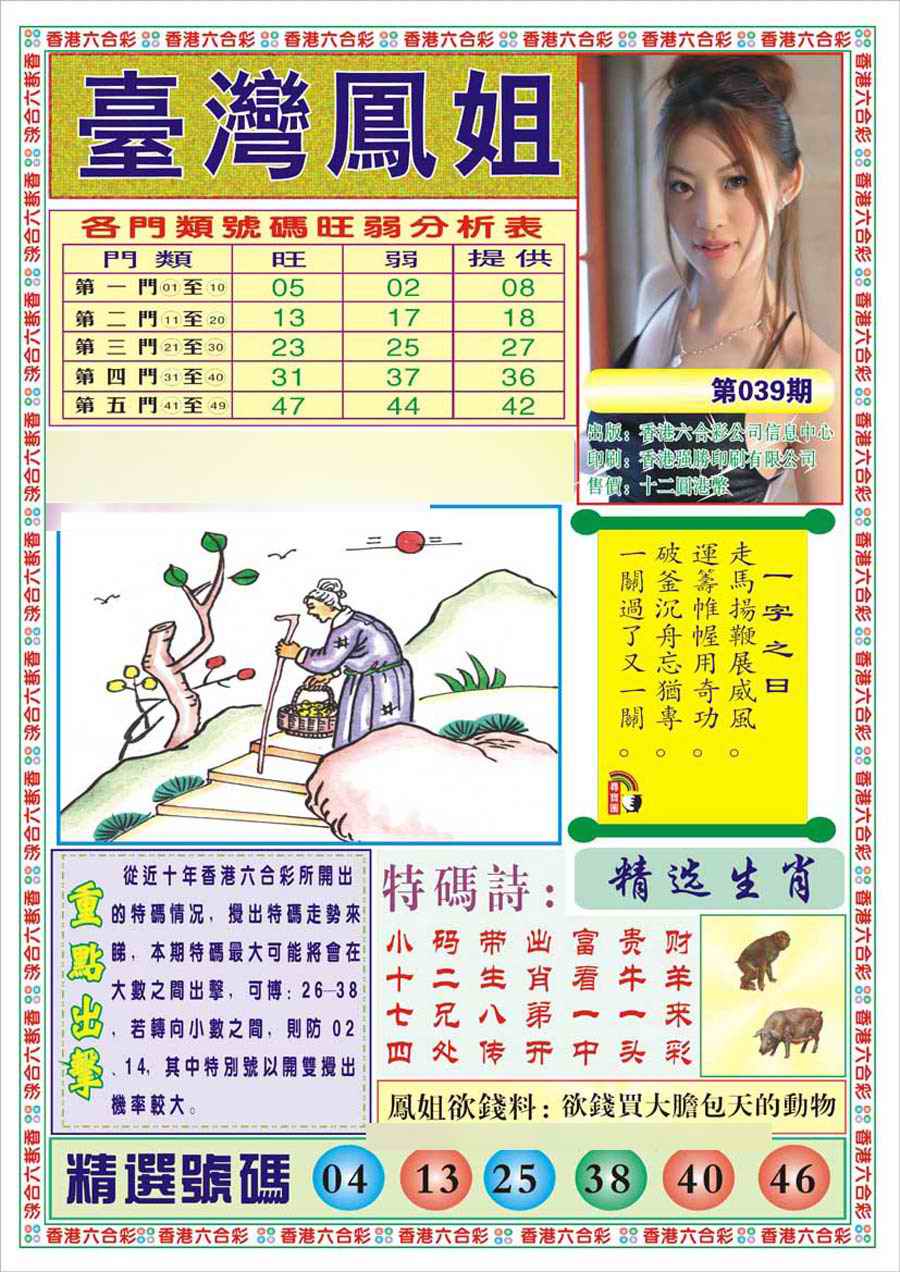 香港六合彩 香港六合彩 香港六合彩 香港六合彩 香港六合彩 香港六合彩 香港六合彩
臺灣鳳姐
各門類號碼旺弱分析表
門類 旺 弱 提供
第一門01至10 05 02 08
第二門11至20 13 17 18
第三門21至30 23 25 27
第四門31至40 31 37 36
第五門41至49 47 44 42
第039期
出版：香港六合彩公司信息中心
印刷：香港强勝印刷有限公司
售價：十二圓港幣
一字之曰
走馬揚鞭展威風。
運籌帷幄用奇功。
破釜沉舟忘猶專。
一關過了又一關。
尋寶圖
重點出擊
從近十年香港六合彩所開出
的特碼情况，攪出特碼走勢來
睇，本期特碼最大可能將會在
大數之間出擊，可博：26—38
，若轉向小數之間，則防 02
、14，其中特別號以開雙攪出
機率較大。
特碼詩：
小码带出富贵财
十二生肖看牛羊
七兄八弟一一来
四处传开中头彩
精选生肖
鳳姐欲錢料：欲錢買大膽包天的動物
精選號碼 04 13 25 38 40 46
香港六合彩 香港六合彩 香港六合彩 香港六合彩 香港六合彩 香港六合彩 香港六合彩